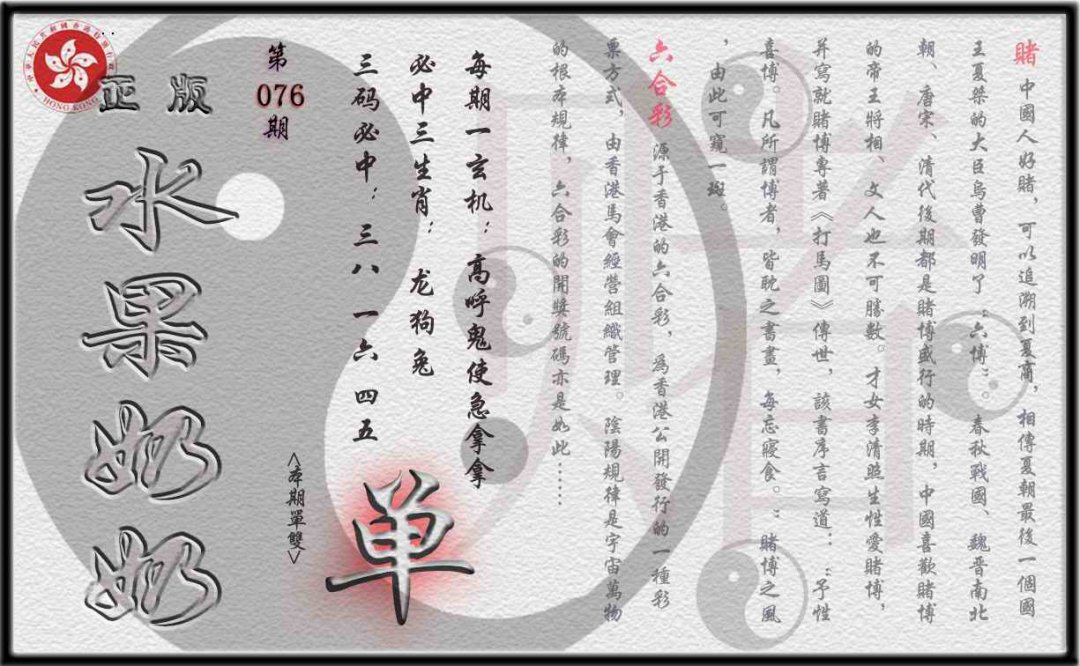 賭 中國人好賭，可以追溯到夏商，相傳夏朝最後一個國
王夏桀的大臣烏曹發明了“六博”。春秋戰國、魏晉南北
朝、唐宋、清代後期都是賭博盛行的時期，中國喜歡賭博
的帝王將相、文人也不可勝數。才女李清照生性愛賭博，
并寫就賭博專著《打馬圖》傳世，該書序言寫道：“予性
喜博。凡所謂博者，皆耽之書畫，每忘寢食。”賭博之風
，由此可窺一斑。
六合彩 源于香港的六合彩，為香港公開發行的一種彩
票方式，由香港馬會經營組織管理。陰陽規律是宇宙萬物
的根本規律，六合彩的開獎號碼亦是如此……
每期一玄机：高呼鬼使急拿拿
必中三生肖：龙狗兔
三码必中：三八 一六 四五
单
<本期單雙>
第
076
期
正版
水果奶奶
HONG KONG